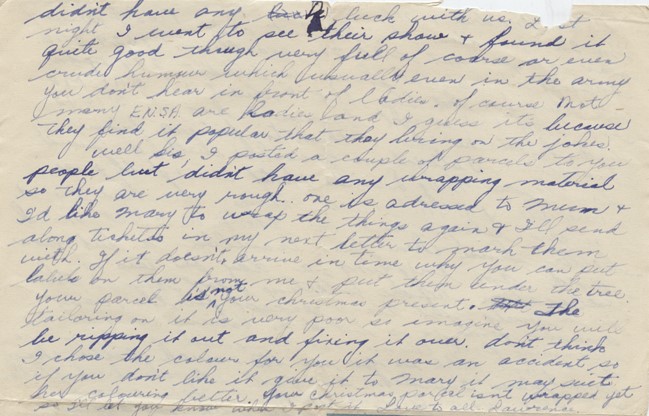 didn't have any luck with us. Last
night I went to see their show & found it
quite good through very full of coarse or even
crude humour which usually even in the army
you don't hear in front of ladies. Of course
many E.N.S.A. are ladies and I guess its because
they find it popular that they bring on the jokes.
Well Sis, I posted a couple of parcels to you
people but didn't have any wrapping material
so they are very rough. one is adressed to Mum &
I'd like Mary to wrap the things again & I'll send
along tickets in my next letter to mark them
with. If it doesn't arrive in time why you can put
labels on them from me & put them under the tree.
Your parcel is not your christmas present. The
tailoring on it is very poor so imagine you will
be ripping it out and fixing it over. don't think
I chose the colour for you it was an accident so
if you don't like it give it to Mary it may suit
her colouring better. Your Christmas parcel isn't wrapped yet
so I'll let you know when I post it. Love to all Lawrence